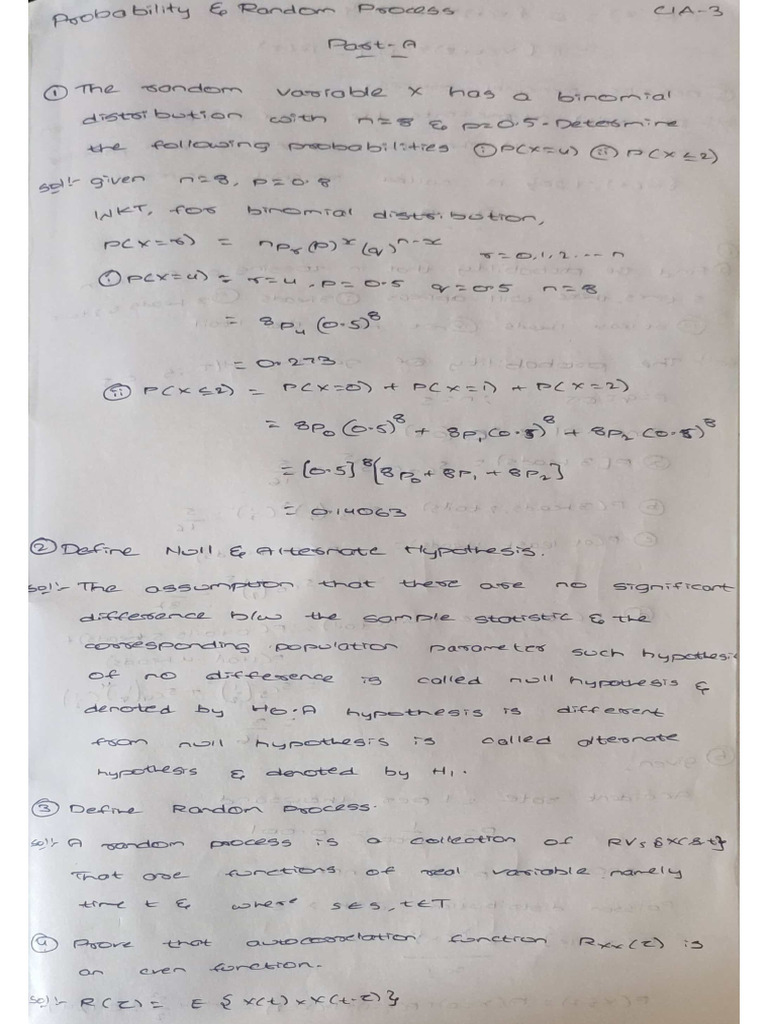 Probability & Random Process CIA-3
Part-A
① The random variable x has a binomial
distribution with n=8 & p=0.5. Determine
the following probabilities ⓘ P(X=4) ⓘⓘ P(X≤2)
sol:- given n=8, p=0.8
WKT, for binomial distribution,
P(X=r) = nPr (p)^x (q)^n-x r=0,1,2....n
ⓘ P(X=4) = r=4, p=0.5 q=0.5 n=8
= 8P4 (0.5)^8
= 0.273
ⓘⓘ P(X≤2) = P(X=0) + P(X=1) + P(X=2)
= 8P0 (0.5)^8 + 8P1 (0.5)^8 + 8P2 (0.5)^8
= [0.5]^8 [8P0 + 8P1 + 8P2]
= 0.14063
② Define Null & Alternate Hypothesis.
sol:- The assumption that there are no significant
difference b/w the sample statistic & the
corresponding population parameter such hypothesis
of no difference is called null hypothesis &
denoted by H0. A hypothesis is different
from null hypothesis is called alternate
hypothesis & denoted by H1.
③ Define Random process.
sol:- A random process is a collection of RVs {X(s,t}
That are functions of real variable namely
time t & where s∈S, t∈T
④ Prove that autocorrelation function Rxx(τ) is
an even function.
sol:- R(τ) = E {x(t) x x(t-τ)}